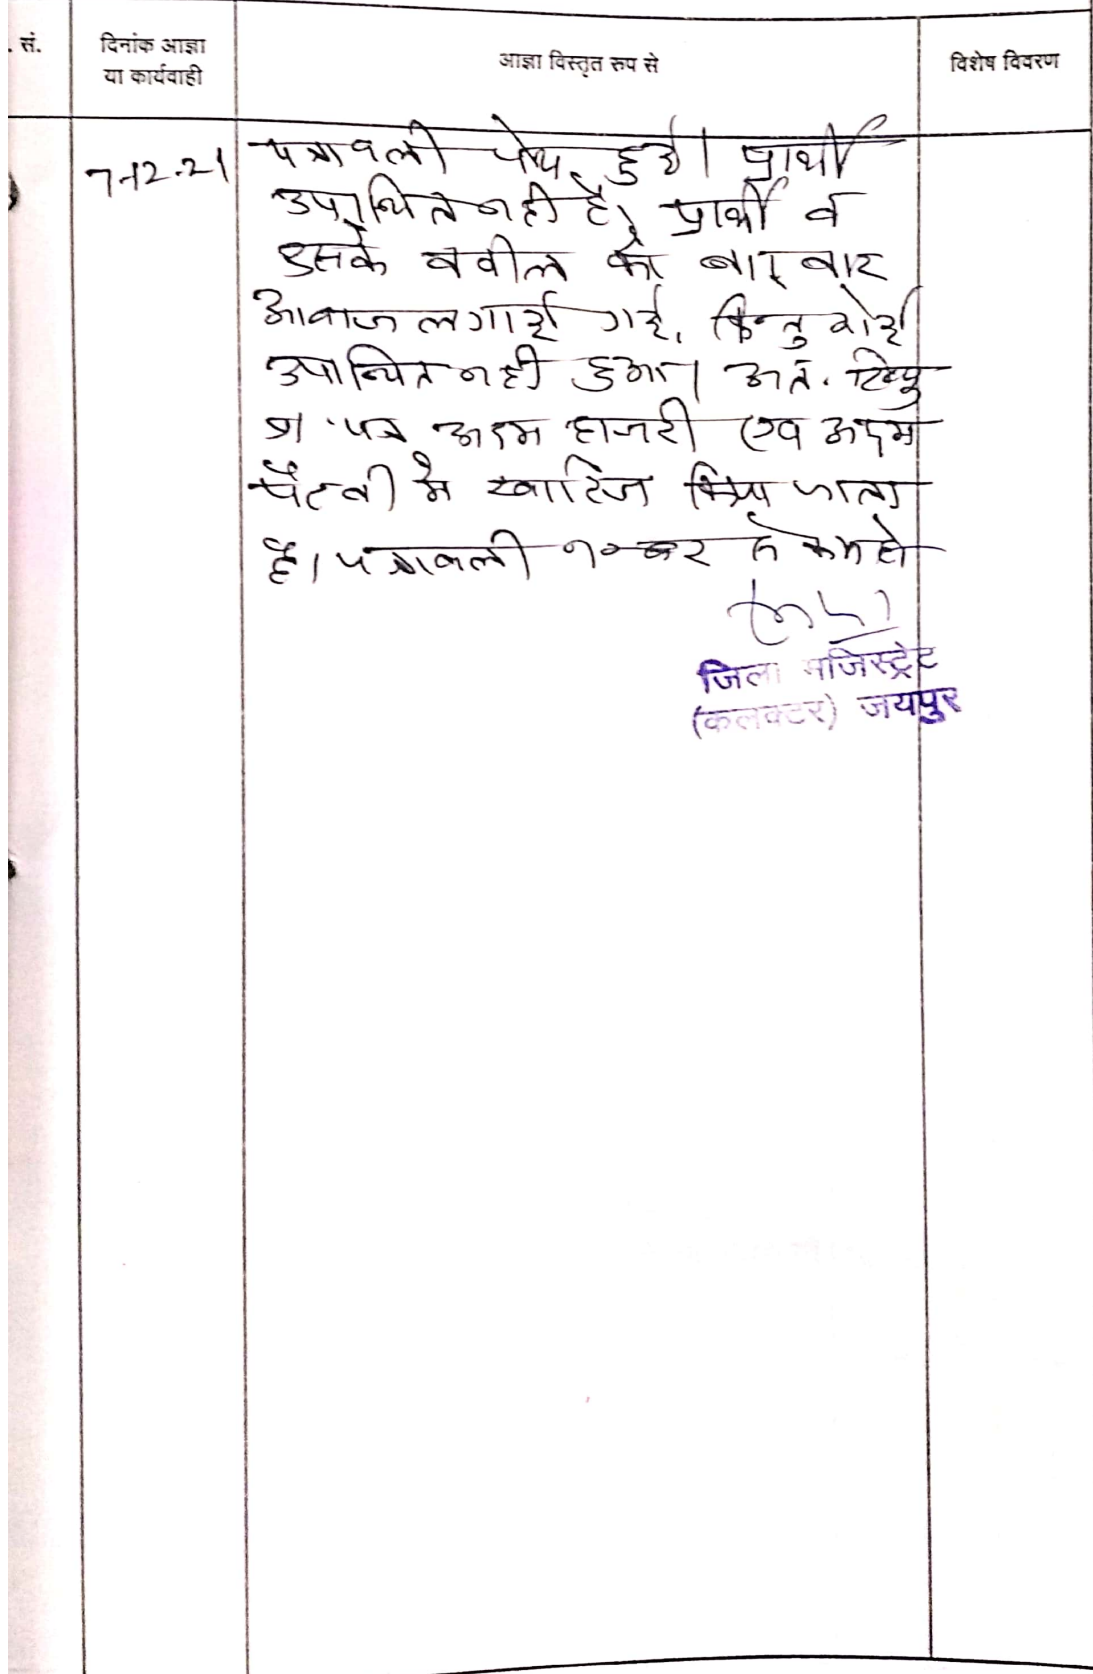 . सं.
दिनांक आज्ञा
या कार्यवाही
आज्ञा विस्तृत रुप से
विशेष विवरण
7-12-21
पत्रावली पेश हुई। प्रार्थी
उपस्थित नही है, प्रार्थी व
उसके वकील को बार बार
आवाज लगाई गई, किन्तु कोई
उपस्थित नही हुआ। अतः
प्रा. पत्र अदम हाजरी एव अदम
पैरवी मे खारिज किया जाता
है। पत्रावली नम्बर से कम हो
जिला मजिस्ट्रेट
(कलक्टर) जयपुर